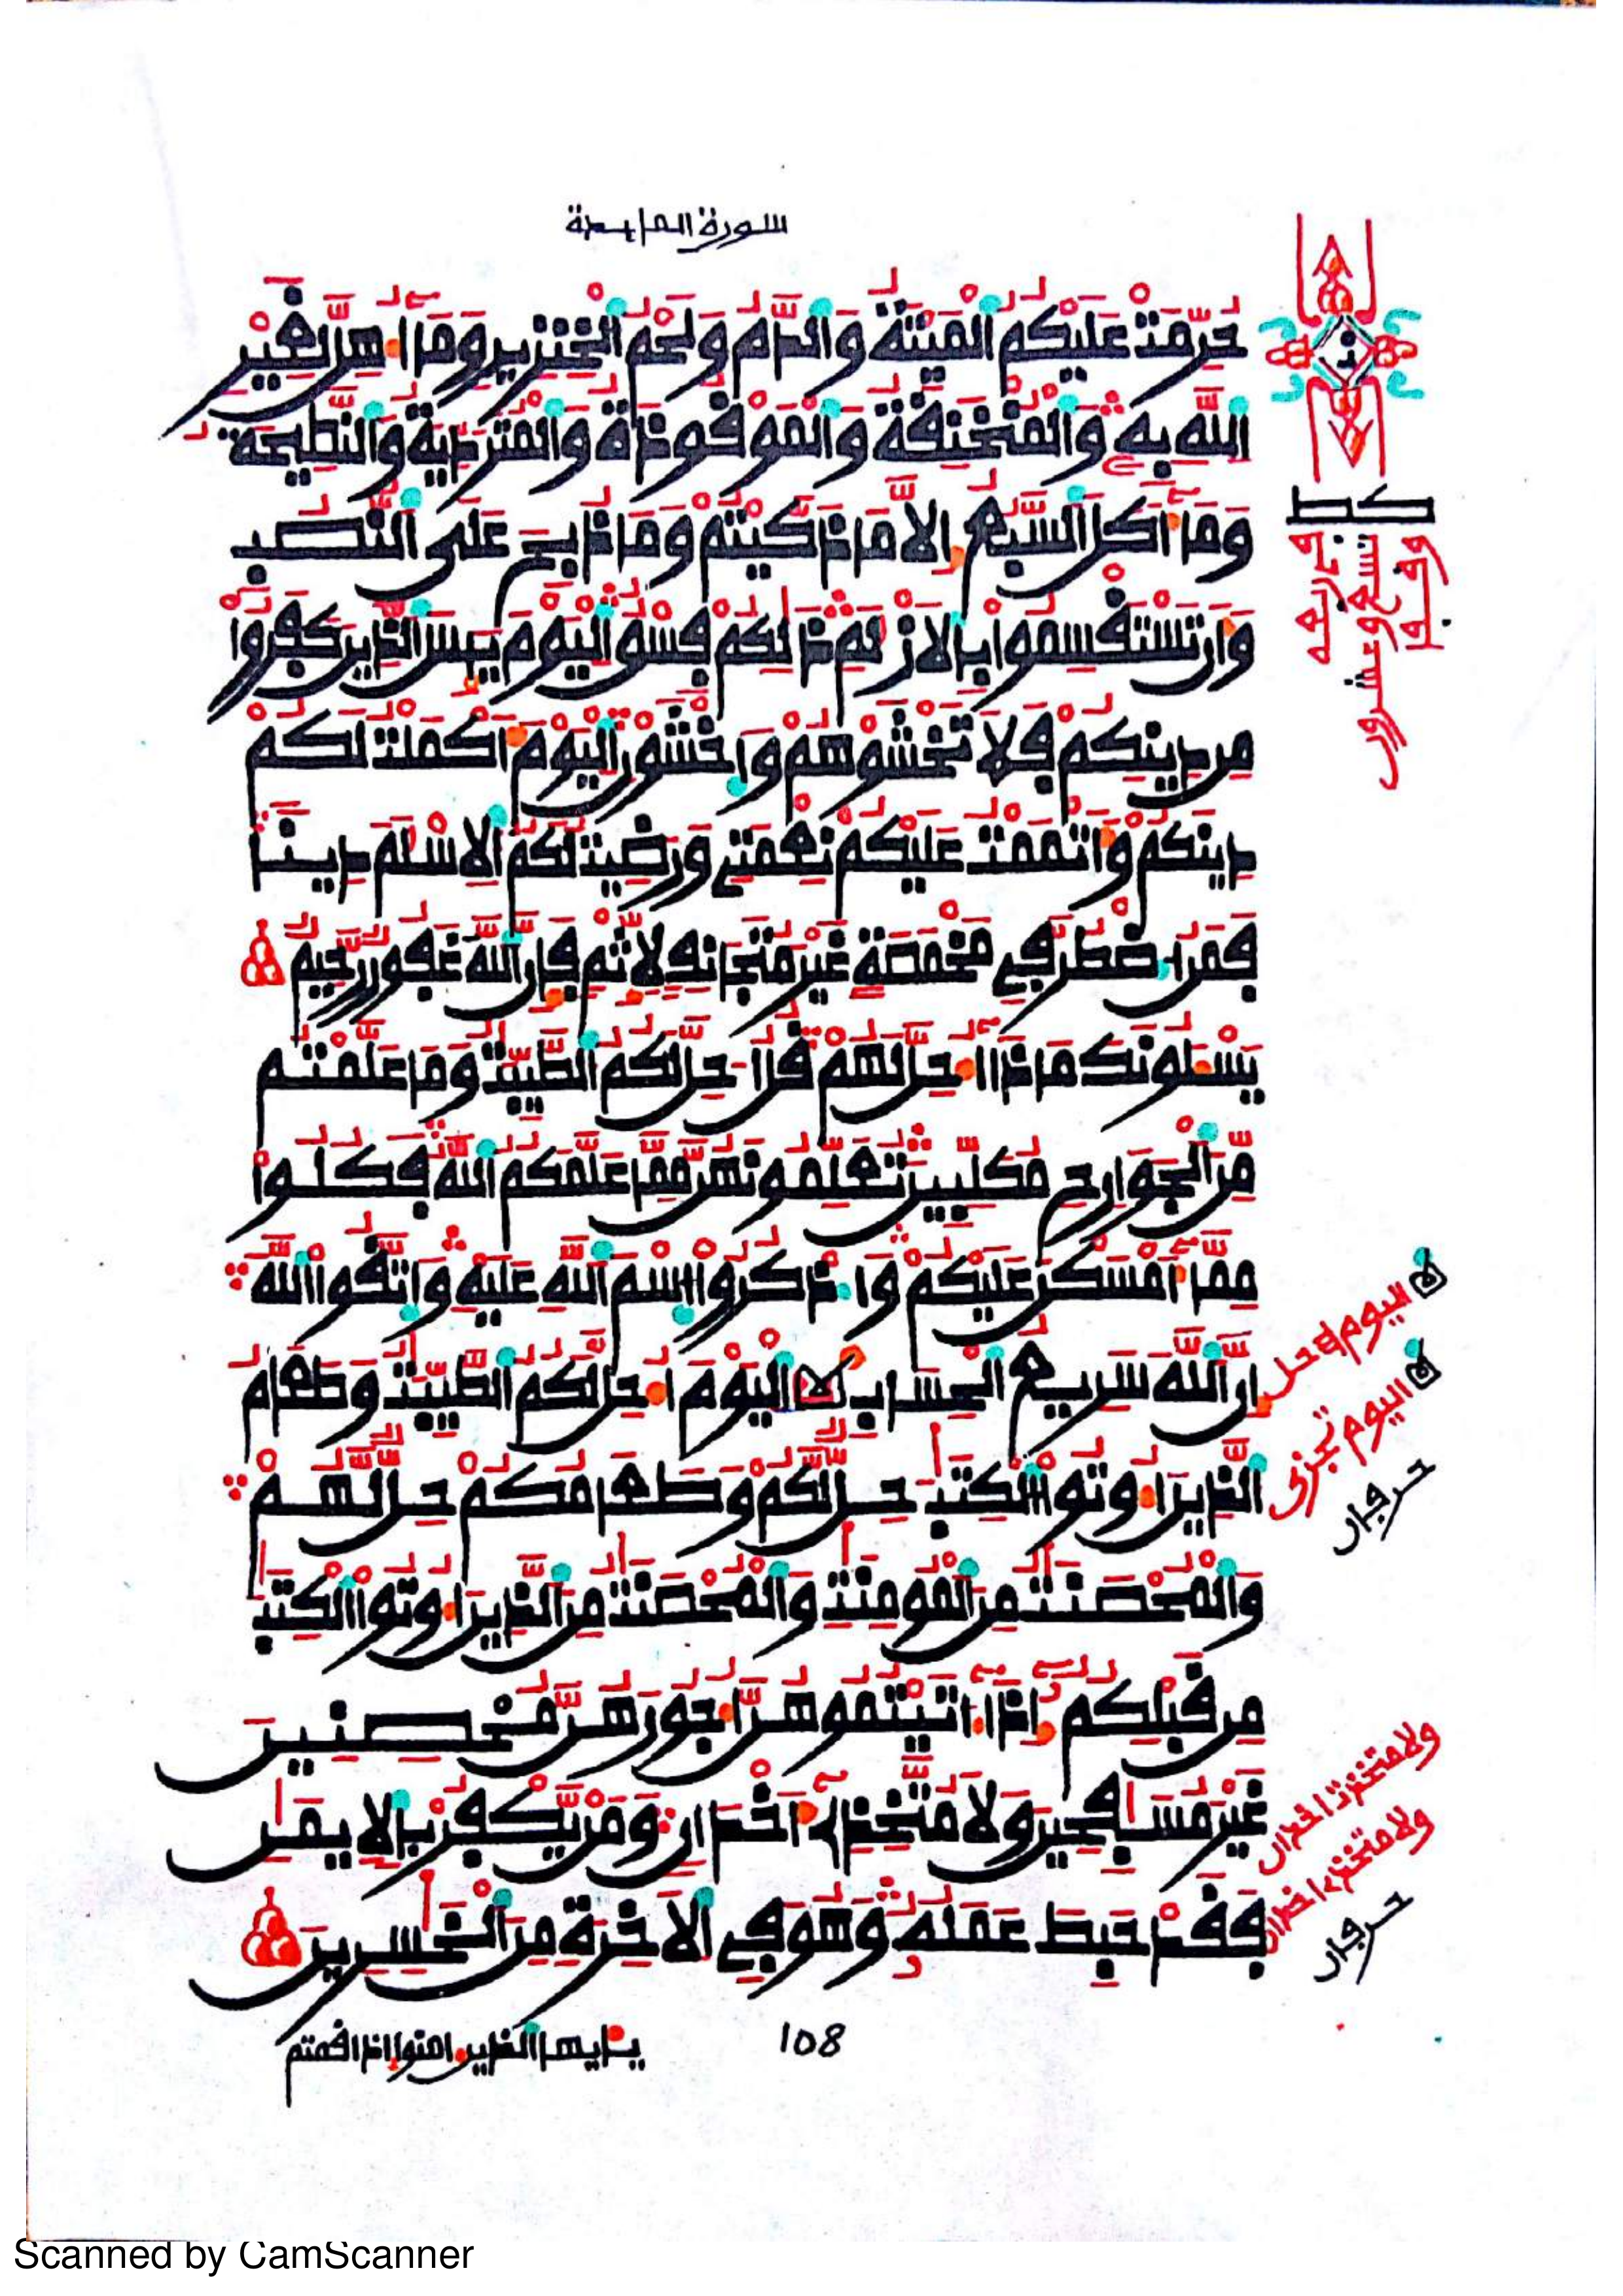 سورة المايدة
حُرِّمَتْ عَلَيْكُمُ الْمَيْتَةُ وَالدَّمُ وَلَحْمُ الْخِنزِيرِ وَمَا أُهِلَّ لِغَيْرِ
اللَّهِ بِهِ وَالْمُنْخَنِقَةُ وَالْمَوْقُوذَةُ وَالْمُتَرَدِّيَةُ وَالنَّطِيحَةُ
وَمَا أَكَلَ السَّبُعُ إِلَّا مَا ذَكَّيْتُمْ وَمَا ذُبِحَ عَلَى النُّصُبِ
وَأَن تَسْتَقْسِمُوا بِالْأَزْلَمِ ذَلِكُمْ فِسْقٌ الْيَوْمَ يَئِسَ الَّذِينَ كَفَرُوا
مِن دِينِكُمْ فَلَا تَخْشَوْهُمْ وَاخْشَوْنِ الْيَوْمَ أَكْمَلْتُ لَكُمْ
دِينَكُمْ وَأَتْمَمْتُ عَلَيْكُمْ نِعْمَتِي وَرَضِيتُ لَكُمُ الْإِسْلَمَ دِينًا
فَمَنُ اضْطُرَّ فِي مَخْمَصَةٍ غَيْرَ مُتَجَانِفٍ لِإِثْمٍ فَإِنَّ اللَّهَ غَفُورٌ رَّحِيمٌ
يَسْـَٔلُونَكَ مَاذَا أُحِلَّ لَهُمْ قُلُ احِلَّ لَكُمُ الطَّيِّبَتُ وَمَا عَلَّمْتُم
مِّنَ الْجَوَارِحِ مُكَلِّبِينَ تُعَلِّمُونَهُنَّ مِمَّا عَلَّمَكُمُ اللَّهُ فَكُلُوا
مِمَّا أَمْسَكْنَ عَلَيْكُمْ وَاذْكُرُوا اسْمَ اللَّهِ عَلَيْهِ وَاتَّقُوا اللَّهَ
إِنَّ اللَّهَ سَرِيعُ الْحِسَابِ الْيَوْمَ أُحِلَّ لَكُمُ الطَّيِّبَتُ وَطَعَامُ
الَّذِينَ أُوتُوا الْكِتَبَ حِلٌّ لَّكُمْ وَطَعَامُكُمْ حِلٌّ لَّهُمْ
وَالْمُحْصَنَتُ مِنَ الْمُومِنَتِ وَالْمُحْصَنَتُ مِنَ الَّذِينَ أُوتُوا الْكِتَبَ
مِن قَبْلِكُمْ إِذَا ءَاتَيْتُمُوهُنَّ أُجُورَهُنَّ مُحْصِنِينَ
غَيْرَ مُسَفِحِينَ وَلَا مُتَّخِذِي أَخْدَانٍ وَمَن يَّكْفُرْ بِالْإِيمَنِ
فَقَدْ حَبِطَ عَمَلُهُ وَهُوَ فِي الْأَخِرَةِ مِنَ الْخَسِرِينَ
يايها الذين امنوا اذا اقمتم
108
كط
تسع وعشرون
وقف
اليوم احل
اليوم تجزى
حرفان
ولا متخذت اخدان
ولا متخذي اخدان
حرفان
Scanned by CamScanner